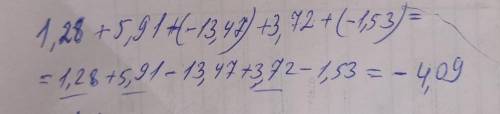 1,28 + 5,91 + (-13,47) + 3,72 + (-1,53) =
= 1,28 + 5,91 - 13,47 + 3,72 - 1,53 = - 4,09